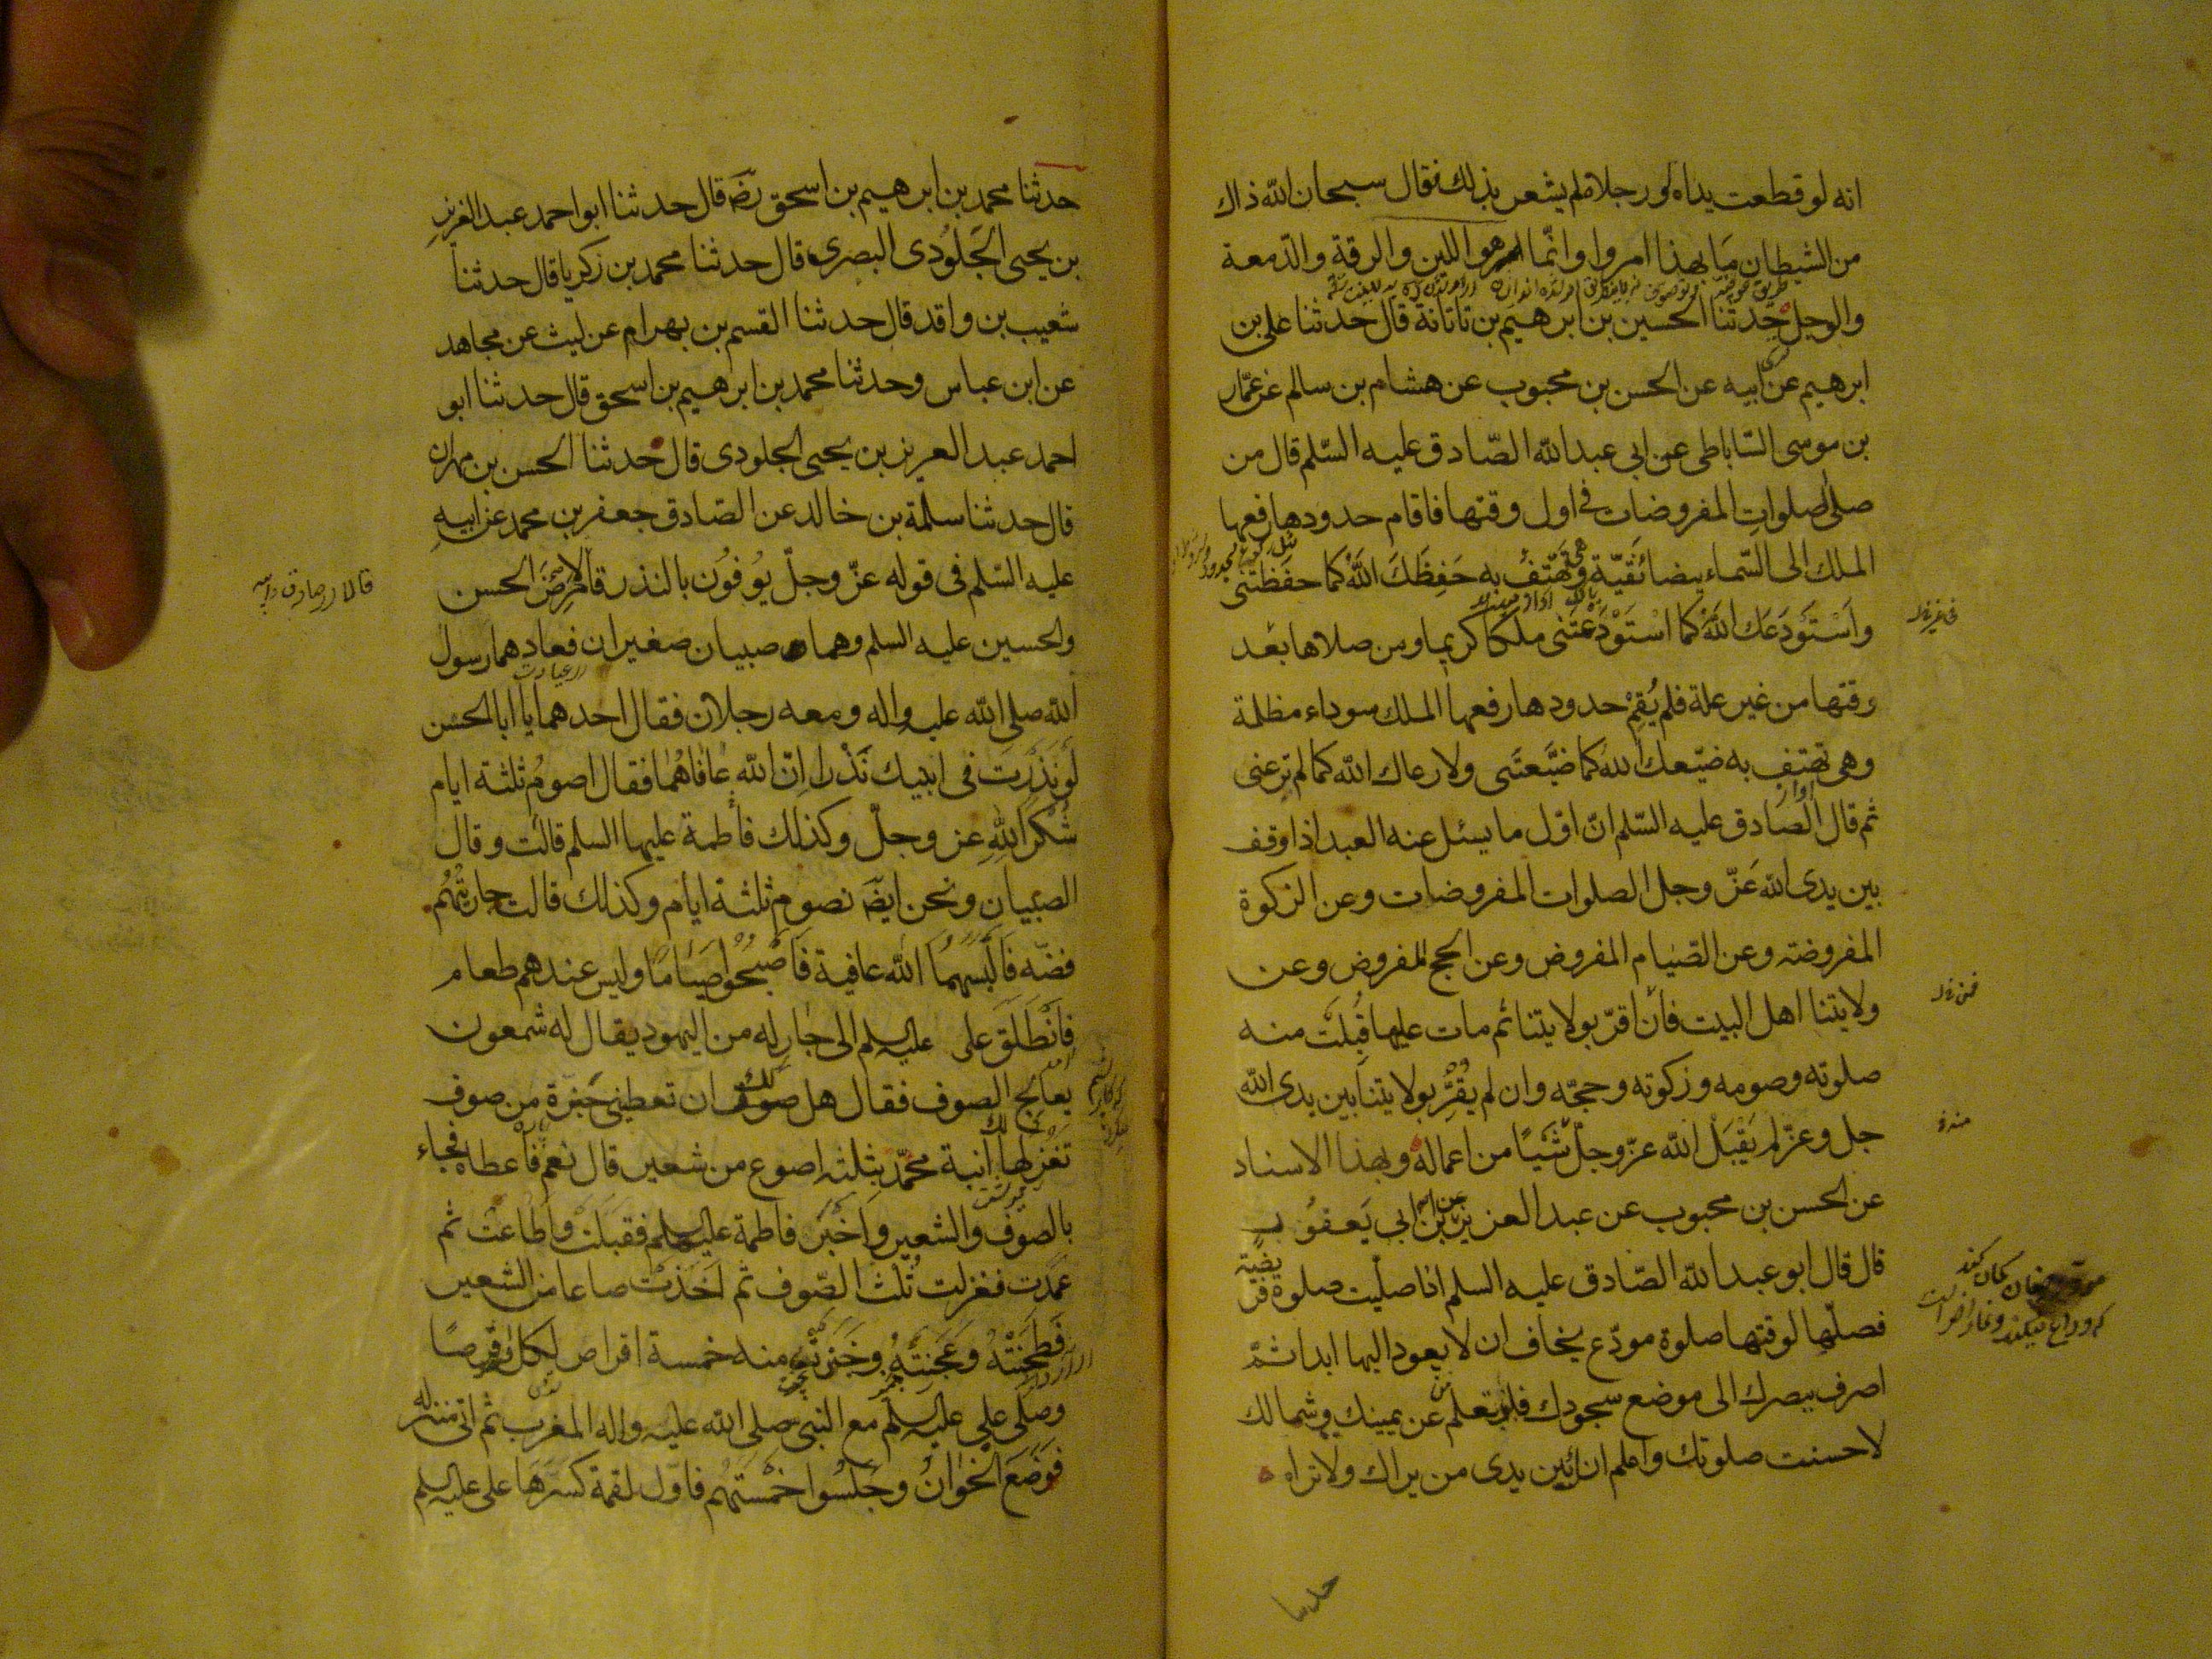 انه لو قطعت يداه او رجلاه لم يشعر بذلك فقال سبحان الله ذاك
من الشيطان ما بهذا امروا وانّما هو اللين والرقة والدّمعة
والوجل حدثنا الحسين بن ابرهيم بن تاتانة قال حدثنا علي بن
ابرهيم عن ابيه عن الحسن بن محبوب عن هشام بن سالم عن عمّار
بن موسى السّاباطي عن ابي عبد الله الصّادق عليه السّلم قال من
صلى الصلوات المفروضات في اول وقتها فاقام حدودها رفعها
الملك الى السّماء بيضا نَقيّة وهي تَهتفُ به حَفِظَكَ اللهُ كما حفَظتَنى
واَسْتَوْدَعَك اللهُ كما اسْتَوْدَعْتَنى ملكا كريما ومن صلاها بعْد
وقتها من غير علة فلم يُقِمْ حدودها رفعها الملك سوداء مظلمة
وهى تهتِف به ضيّعك الله كما ضَيَّعتَنى ولا رعاك الله كما لم ترعنى
ثم قال الصادق عليه السّلم انّ اوّل ما يسئل عنه العبد اذا وقف
بين يدى الله عَزّ وجل الصلوات المفروضات وعن الزكوة
المفروضه وعن الصّيام المفروض وعن الحج المفروض وعن
ولايتنا اهل البيت فان اقرّ بولايتنا ثم مات عليها قُبِلَتْ منه
صلوته وصومه وزكوته وحجّه وان لم يُقرّ بولايتنا بين يدى الله
جل وعزّ لم يَقْبَل الله عزّ وجلّ شَيًا من اعماله وبهذا الاسناد
عن الحسن بن محبوب عن عبد العزيز عن ابن ابى يَعفوُب
قال قال ابو عبد الله الصّادق عليه السلم اذا صلّيت صلوة فريضة
فصلّها لوقتها صلوة مودّع يخاف ان لا يعود اليها ابدا ثمّ
اصرف ببصرك الى موضع سجودك فلو تعلم من عن يمينك وشمالك
لاحسنت صلوتك واعلم انك بين يدى من يراك ولا تراه
حدثنا
حدثنا محمد بن ابرهيم بن اسحق رضَ قال حدثنا ابو احمد عبد العزيز
بن يحيى الجَلُودى البصرى قال حدثنا محمد بن زكريا قال حدثنا
شعيب بن واقد قال حدثنا القسم بن بهرام عن ليث عن مجاهد
عن ابن عباس وحدثنا محمد بن ابرهيم بن اسحق قال حدثنا ابو
احمد عبد العزيز بن يحيى الجلودى قال حدثنا الحسن بن مهران
قال حدثنا سلمة بن خالد عن الصّادق جعفر بن محمد عن ابيهِ
عليه السّلم فى قوله عزّ وجلّ يوُفوُن بالنذر قالا مرِضَ الحسن
والحسين عليه السلم وهما صبيان صغيران فعادهما رسول
الله صلى الله عليه واله ومعه رجلان فقال احدهما يا ابا الحسن
لو نَذَرْتَ فى ابنيك نَذْرا اِنّ اللهَ عافاهُما فقال اصومُ ثلثة ايام
شُكرًا للهِ عز وجلّ وكذلك فاطمة عليها السلم قالت وقال
الصبيان ونحن ايضَ نصوم ثلثة ايام وكذلك قالت جاريتُهُم
فضّه فَاَلْبَسهما الله عافية فَاَصْبحوُا صيَامًا وليس عندهم طعام
فَانْطَلَقَ على عليه السلم الى جارٍ له من اليهود يقال له شمعون
يعالج الصوف فقال هل لك ان تعطينى جَزّة من صوف
تغزلها لك ابنة محمّد بثلثه اصوع من شعير قال نعَم فأعطاه فجاء
بالصوف والشعير واَخْبَرَ فاطمة عليها السلم فقبلتْ واَطاعتْ ثم
عمَدت فغزلت ثُلث الصّوف ثم اَخَذَتْ صاعا من الشعير
فَطحَنَتْهُ وعَجَنتْهُ وخَبَزتْ منه خمسة اقراص لكل واحد قرصًا
وصلّى على عليه السلم مع النبىّ صلى الله عليه واله المغرب ثم اتى منزله
فوَضعَ الخوَانُ وجَلَسُوا خمْسَتهُم فاوّل لقمة كسَرَهَا على عليه السلم